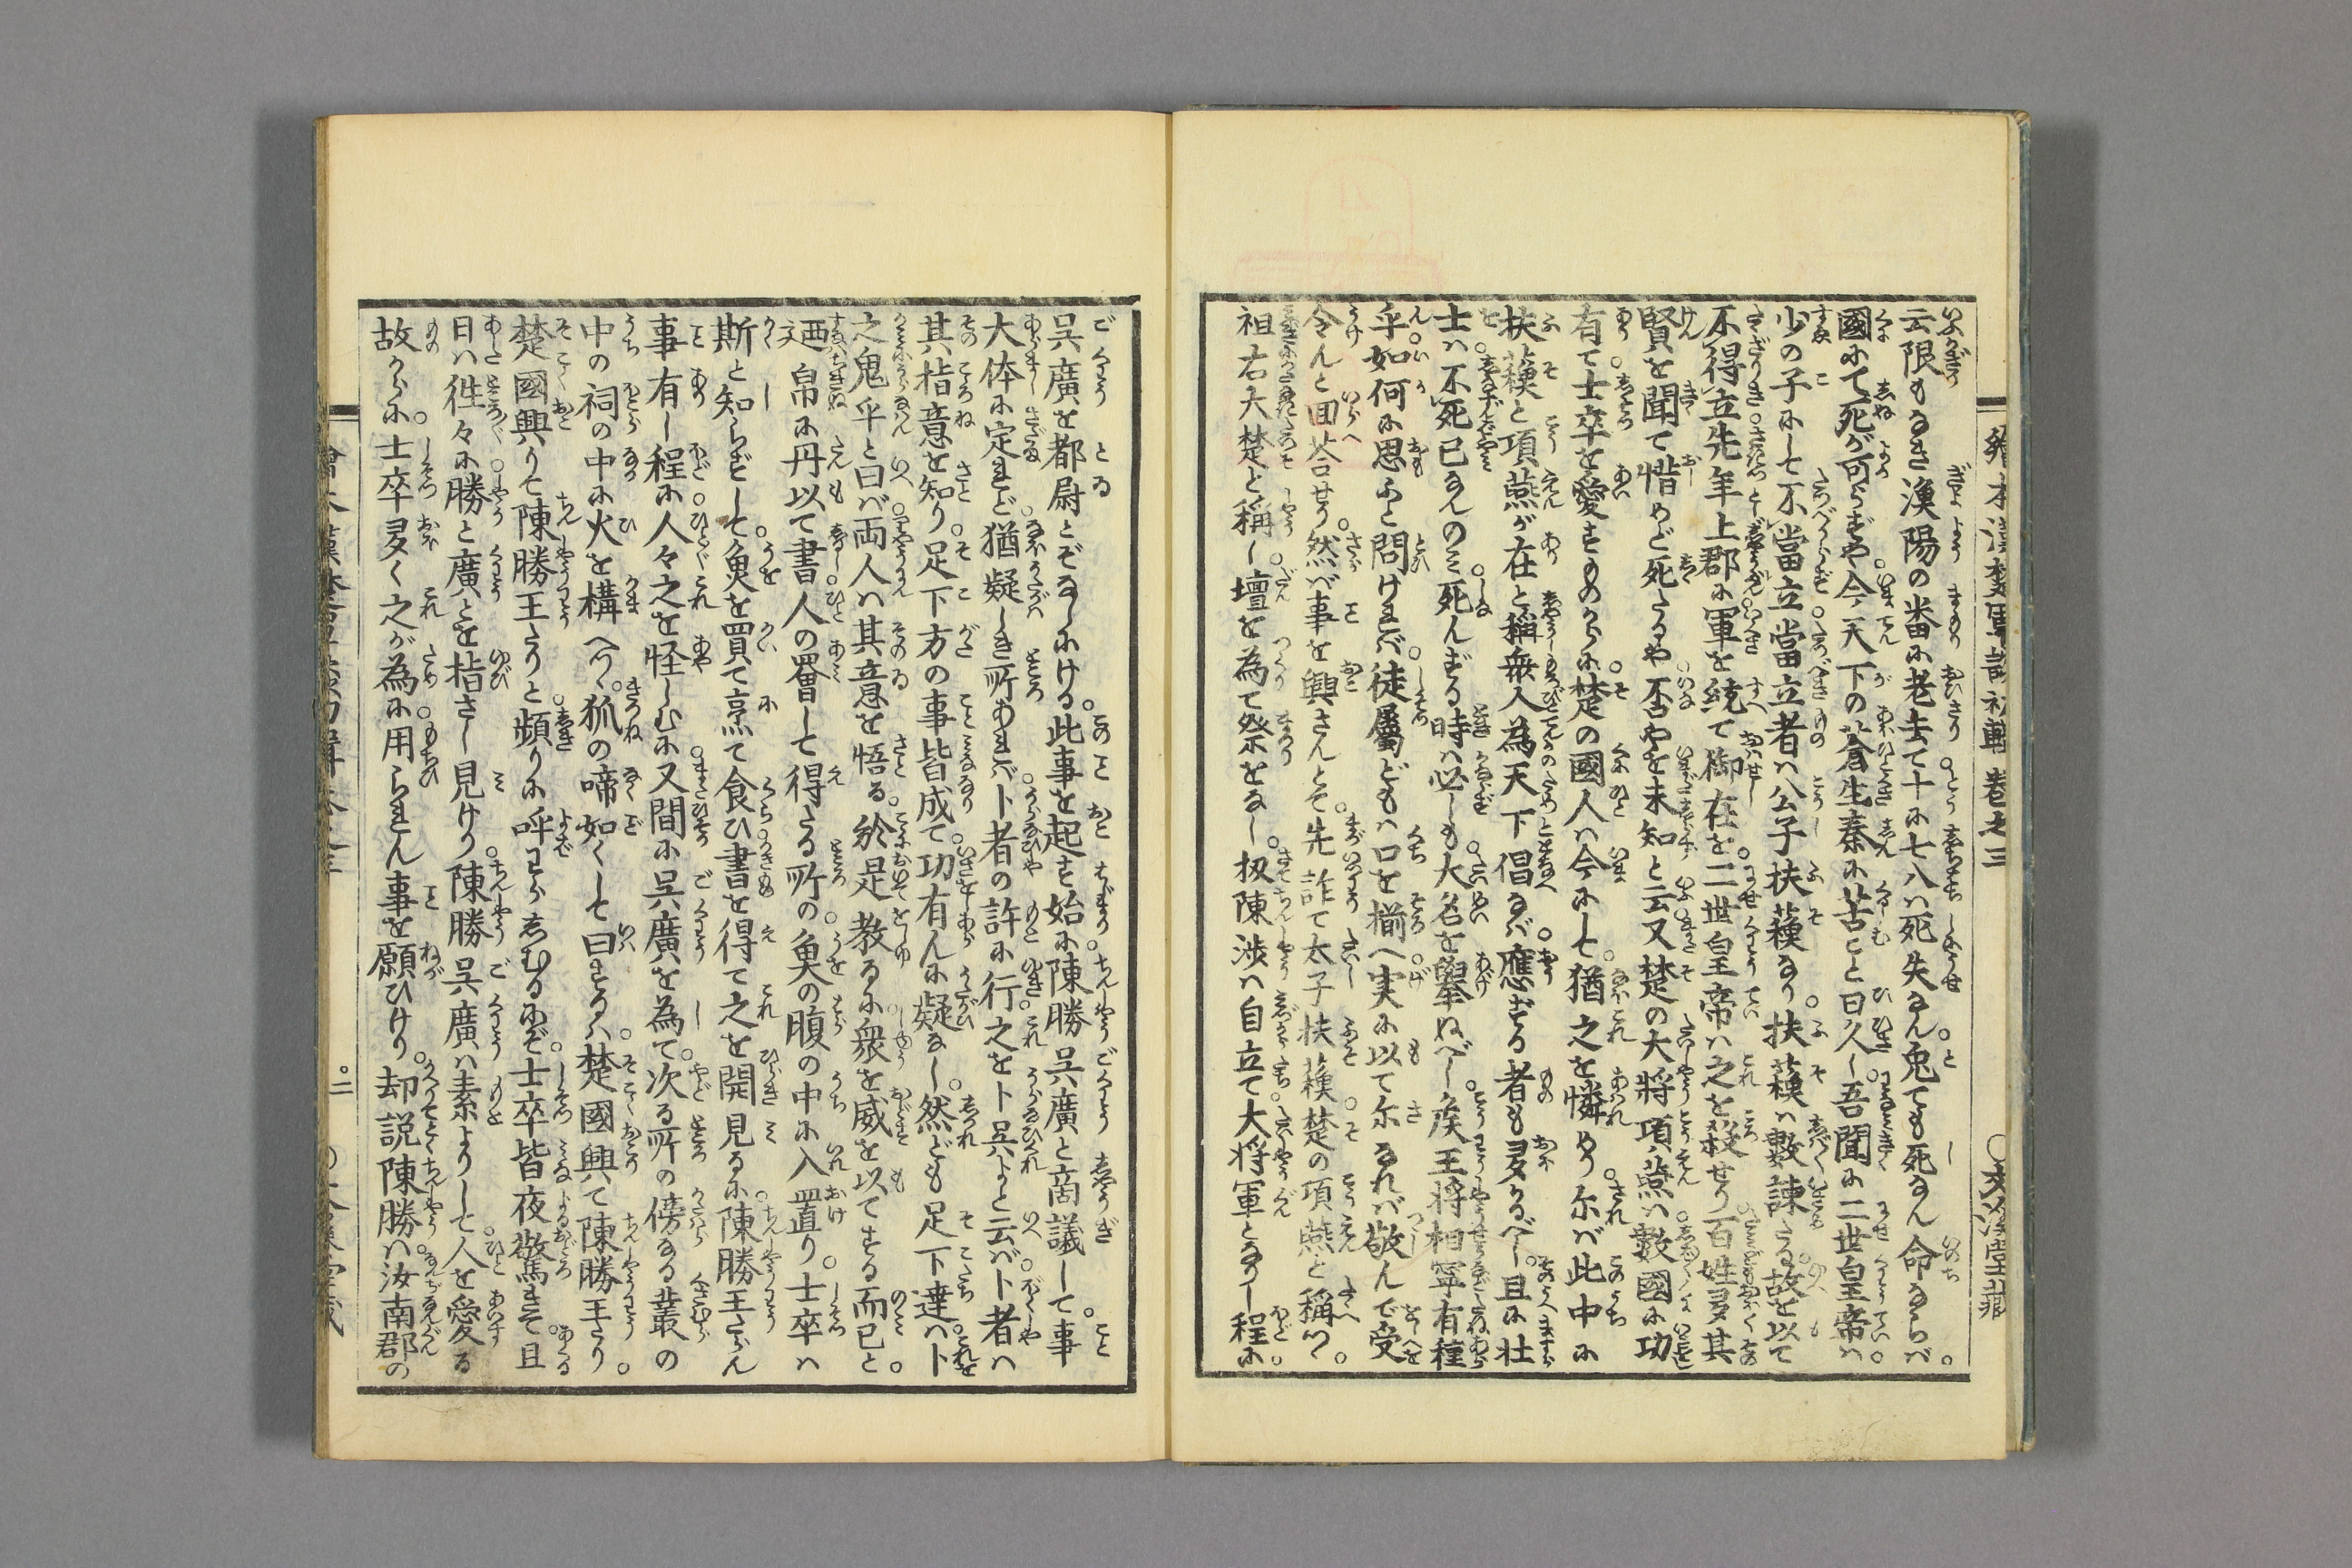 繪本漢楚軍談初輯 巻之三
云限もなき漁陽の畨に老去て十に七八ハ死失なん兎ても死なん命ならバ
國にて死が可らずや今天下の蒼生秦に苦こと日久し吾聞に二世皇帝ハ
少の子にして不當立當立者ハ公子扶蘓なり扶蘓ハ數諫さる故を以て
不得立先年上郡に軍を統て御在を二世皇帝ハ之を殺せり百姓多其
賢を聞て惜めど死たるや否やを未知と云又楚の大将項燕ハ數國に功
有て士卒を愛するのからに楚の國人ハ今にして猶之を憐めり尓バ此中に
扶蘓と項燕が在と稱無人為天下倡なバ應ずる者も多かるべし且に壮
士ハ不死已なんのミ死んずる時ハ必しも大名を舉ぬべし矦王将相寧有種
乎如何に思ふと問けれバ徒屬どもハ口を揃へ実に以て尓なれバ敬んで受
令んと回荅せり然バ事を興さんとそ先詐て太子扶蘓楚の項燕と稱つゝ
祖右大楚と稱し壇を為て祭をなし扨陳渉ハ自立て大将軍となりし程に
呉廣を都尉とぞなしにける此事を起す始に陳勝呉廣と商議して事
大体に定れど猶疑しき所あれバ卜者の許に行之を卜呉よと云バ卜者ハ
其指意を知り足下方の事皆成て功有んに疑なし然ども足下達ハト
之鬼乎と曰バ両人ハ其意を悟る於是教るに衆を威を以てする而已と
廼帛に丹以て書人の罾して得たる所の魚の腹の中に入置り士卒ハ
斯と知らずして魚を買て烹て食ひ書を得て之を開見るに陳勝王たらん
事有し程に人々之を怪しむに又間に呉廣を為て次る所の傍なる叢の
中の祠の中に火を構へつゝ狐の啼如くして曰するハ楚國興て陳勝王たり
楚國興りて陳勝王たりと頻りに呼ずらしむるにぞ士卒皆夜驚きそ且
日ハ徃々に勝と廣とを指さし見けり陳勝呉廣ハ素よりして人を愛る
故からに士卒多く之が為に用られん事を願ひけり却説陳勝ハ汝南郡の